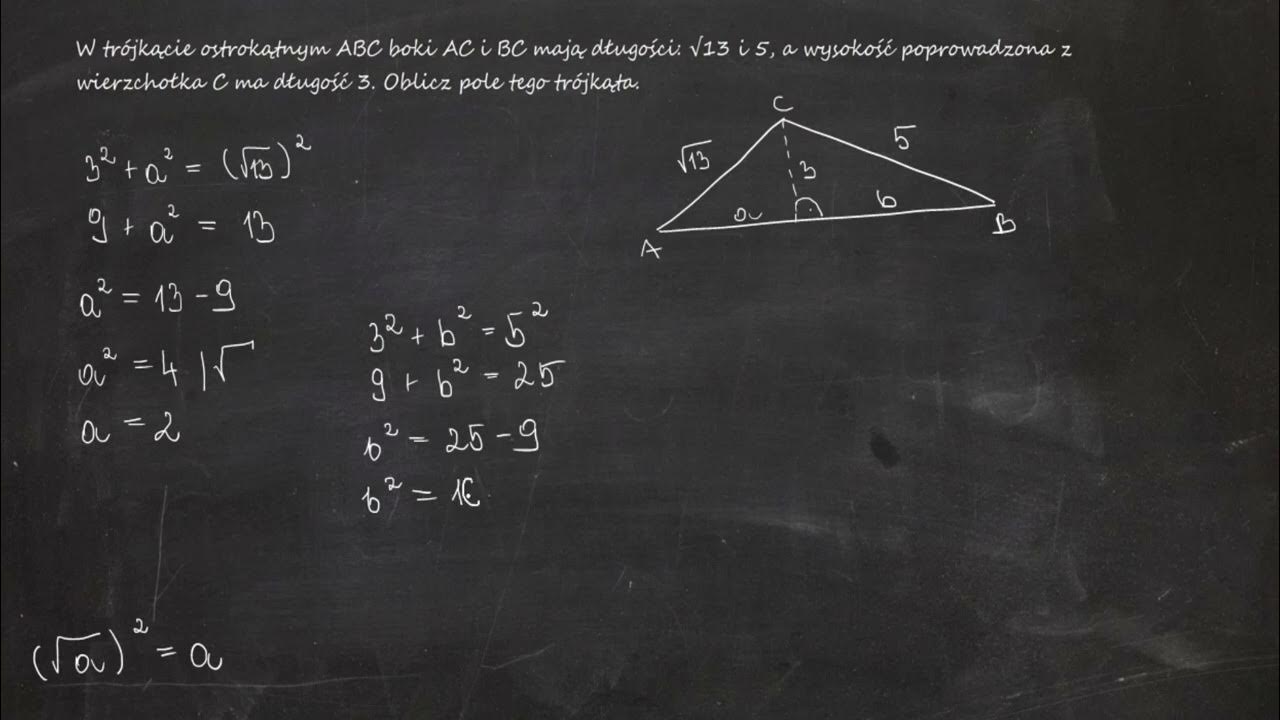 W trójkącie ostrokątnym ABC boki AC i BC mają długości: √13 i 5, a wysokość poprowadzona z
wierzchołka C ma długość 3. Oblicz pole tego trójkąta.
C
√13
5
3
a
b
A
B
3² + a² = (√13)²
9 + a² = 13
a² = 13 - 9
a² = 4 |√
a = 2
3² + b² = 5²
9 + b² = 25
b² = 25 - 9
b² = 16
(√a)² = a